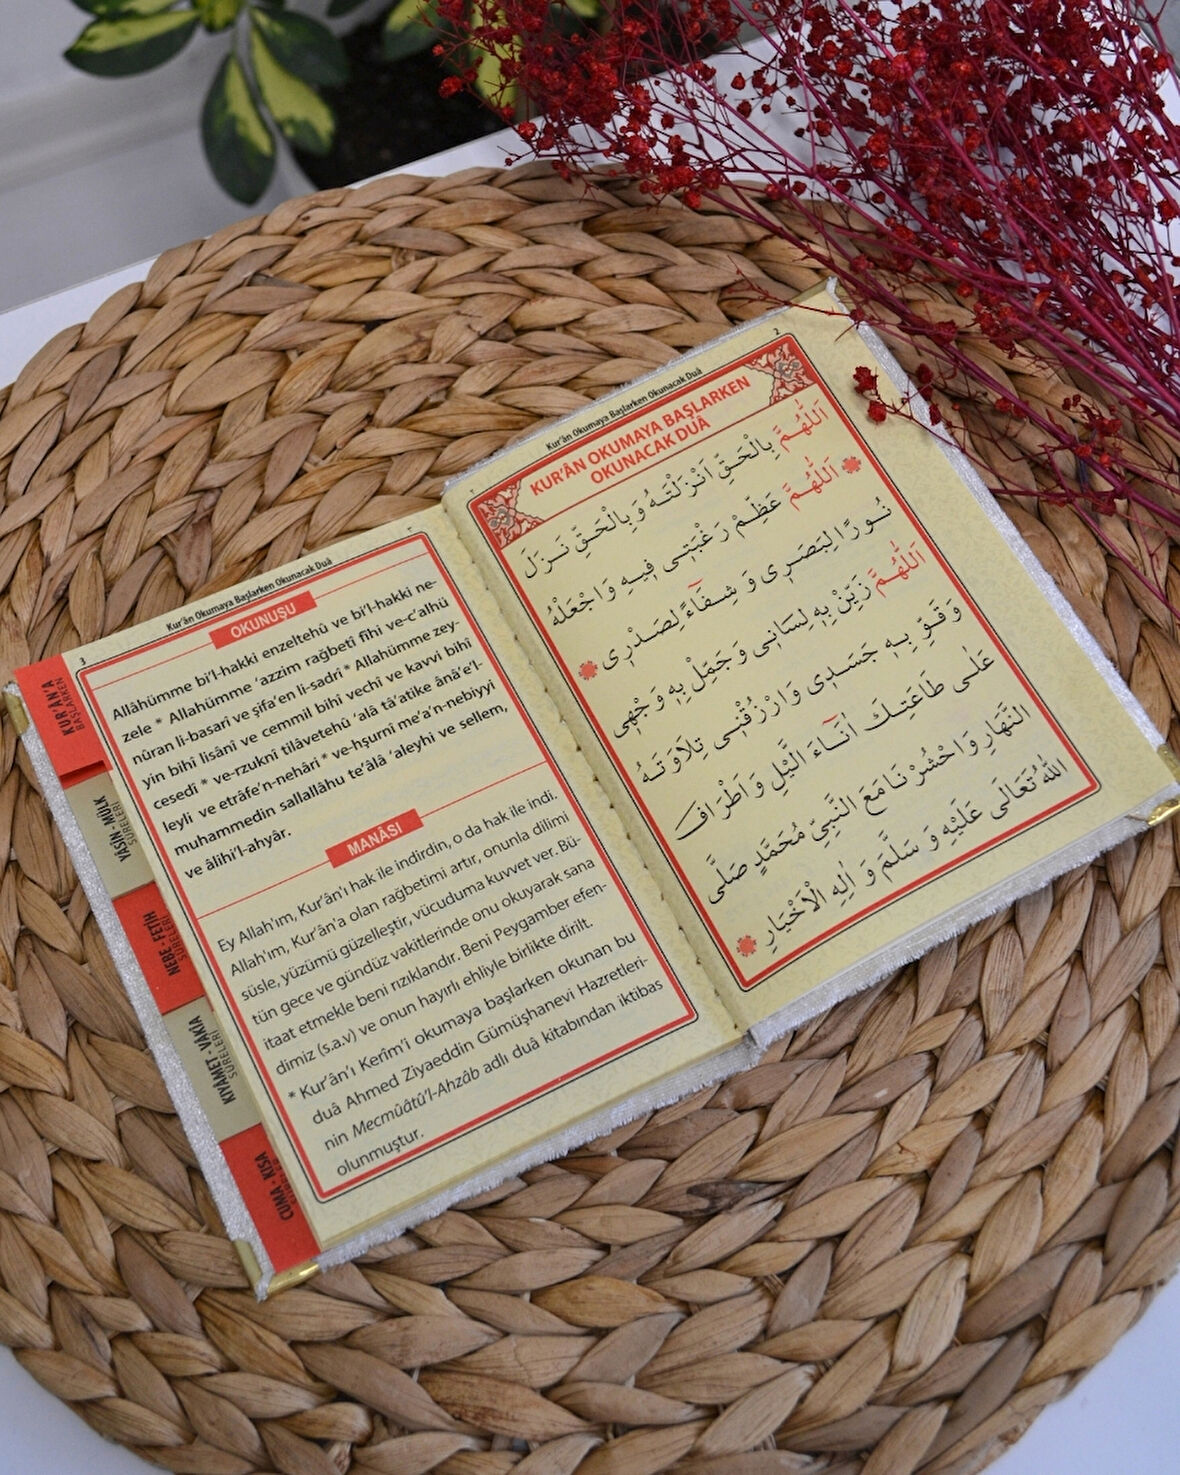 Kur'ân Okumaya Başlarken Okunacak Duâ
2
KUR'ÂN OKUMAYA BAŞLARKEN
OKUNACAK DUÂ
اَللّٰهُمَّ بِالْحَقِّ اَنْزَلْتَهُ وَبِالْحَقِّ نَزَلَ
اَللّٰهُمَّ عَظِّمْ رَغْبَتٖى فٖيهِ وَاجْعَلْهُ
نُورًا لِبَصَرٖى وَ شِفَٓاءً لِصَدْرٖى
اَللّٰهُمَّ زَيِّنْ بِهٖ لِسَانٖى وَ جَمِّلْ بِهٖ وَجْهٖى
وَقَوِّ بِهٖ جَسَدٖى وَارْزُقْنٖى تِلَاوَتَهُ
عَلٰى طَاعَتِكَ اٰنَٓاءَ الَّيْلِ وَاَطْرَافَ
النَّهَارِ وَاحْشُرْنَا مَعَ النَّبِيِّ مُحَمَّدٍ صَلَّى
اللّٰهُ تَعَالَى عَلَيْهِ وَ سَلَّمَ وَ اٰلِهِ الْاَخْيَارِ
Kur'ân Okumaya Başlarken Okunacak Duâ
3
OKUNUŞU
Allâhümme bi'l-hakki enzeltehû ve bi'l-hakki ne-
zele * Allahümme 'azzim rağbetî fîhi ve-c'alhü
nûran li-basarî ve şifa'en li-sadrî * Allahümme zey-
yin bihî lisânî ve cemmil bihî vechî ve kavvi bihî
cesedî * ve-rzuknî tilâvetehû 'alâ tâ'atike ânâ'e'l-
leyli ve etrâfe'n-nehâri * ve-hşurnî me'a'n-nebiyyi
muhammedin sallallâhu te'âlâ 'aleyhi ve sellem,
ve âlihi'l-ahyâr.
MANÂSI
Ey Allah'ım, Kur'ân'ı hak ile indirdin, o da hak ile indi.
Allah'ım, Kur'ân'a olan rağbetimi artır, onunla dilimi
süsle, yüzümü güzelleştir, vücuduma kuvvet ver. Bü-
tün gece ve gündüz vakitlerinde onu okuyarak sana
itaat etmekle beni rızıklandır. Beni Peygamber efen-
dimiz (s.a.v) ve onun hayırlı ehliyle birlikte dirilt.
* Kur'ân'ı Kerîm'i okumaya başlarken okunan bu
duâ Ahmed Ziyaeddin Gümüşhanevi Hazretleri-
nin Mecmûâtû'l-Ahzâb adlı duâ kitabından iktibas
olunmuştur.
KUR'ÂN'A
BAŞLARKEN
YÂSÎN - MÜLK
SÛRELERİ
NEBE - FETİH
SÛRELERİ
KIYÂMET - VÂKIA
SÛRELERİ
CUMA - KISA